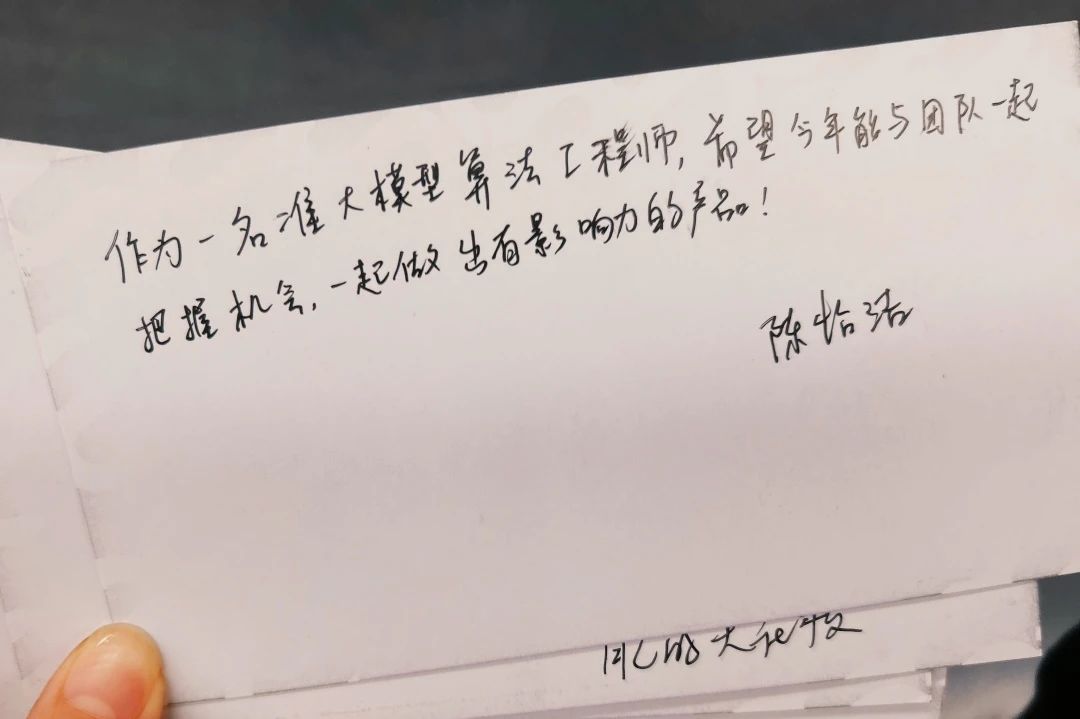 作为一名准大模型算法工程师,希望今年能与团队一起
把握机会,一起做出有影响力的产品!
陈怡洁